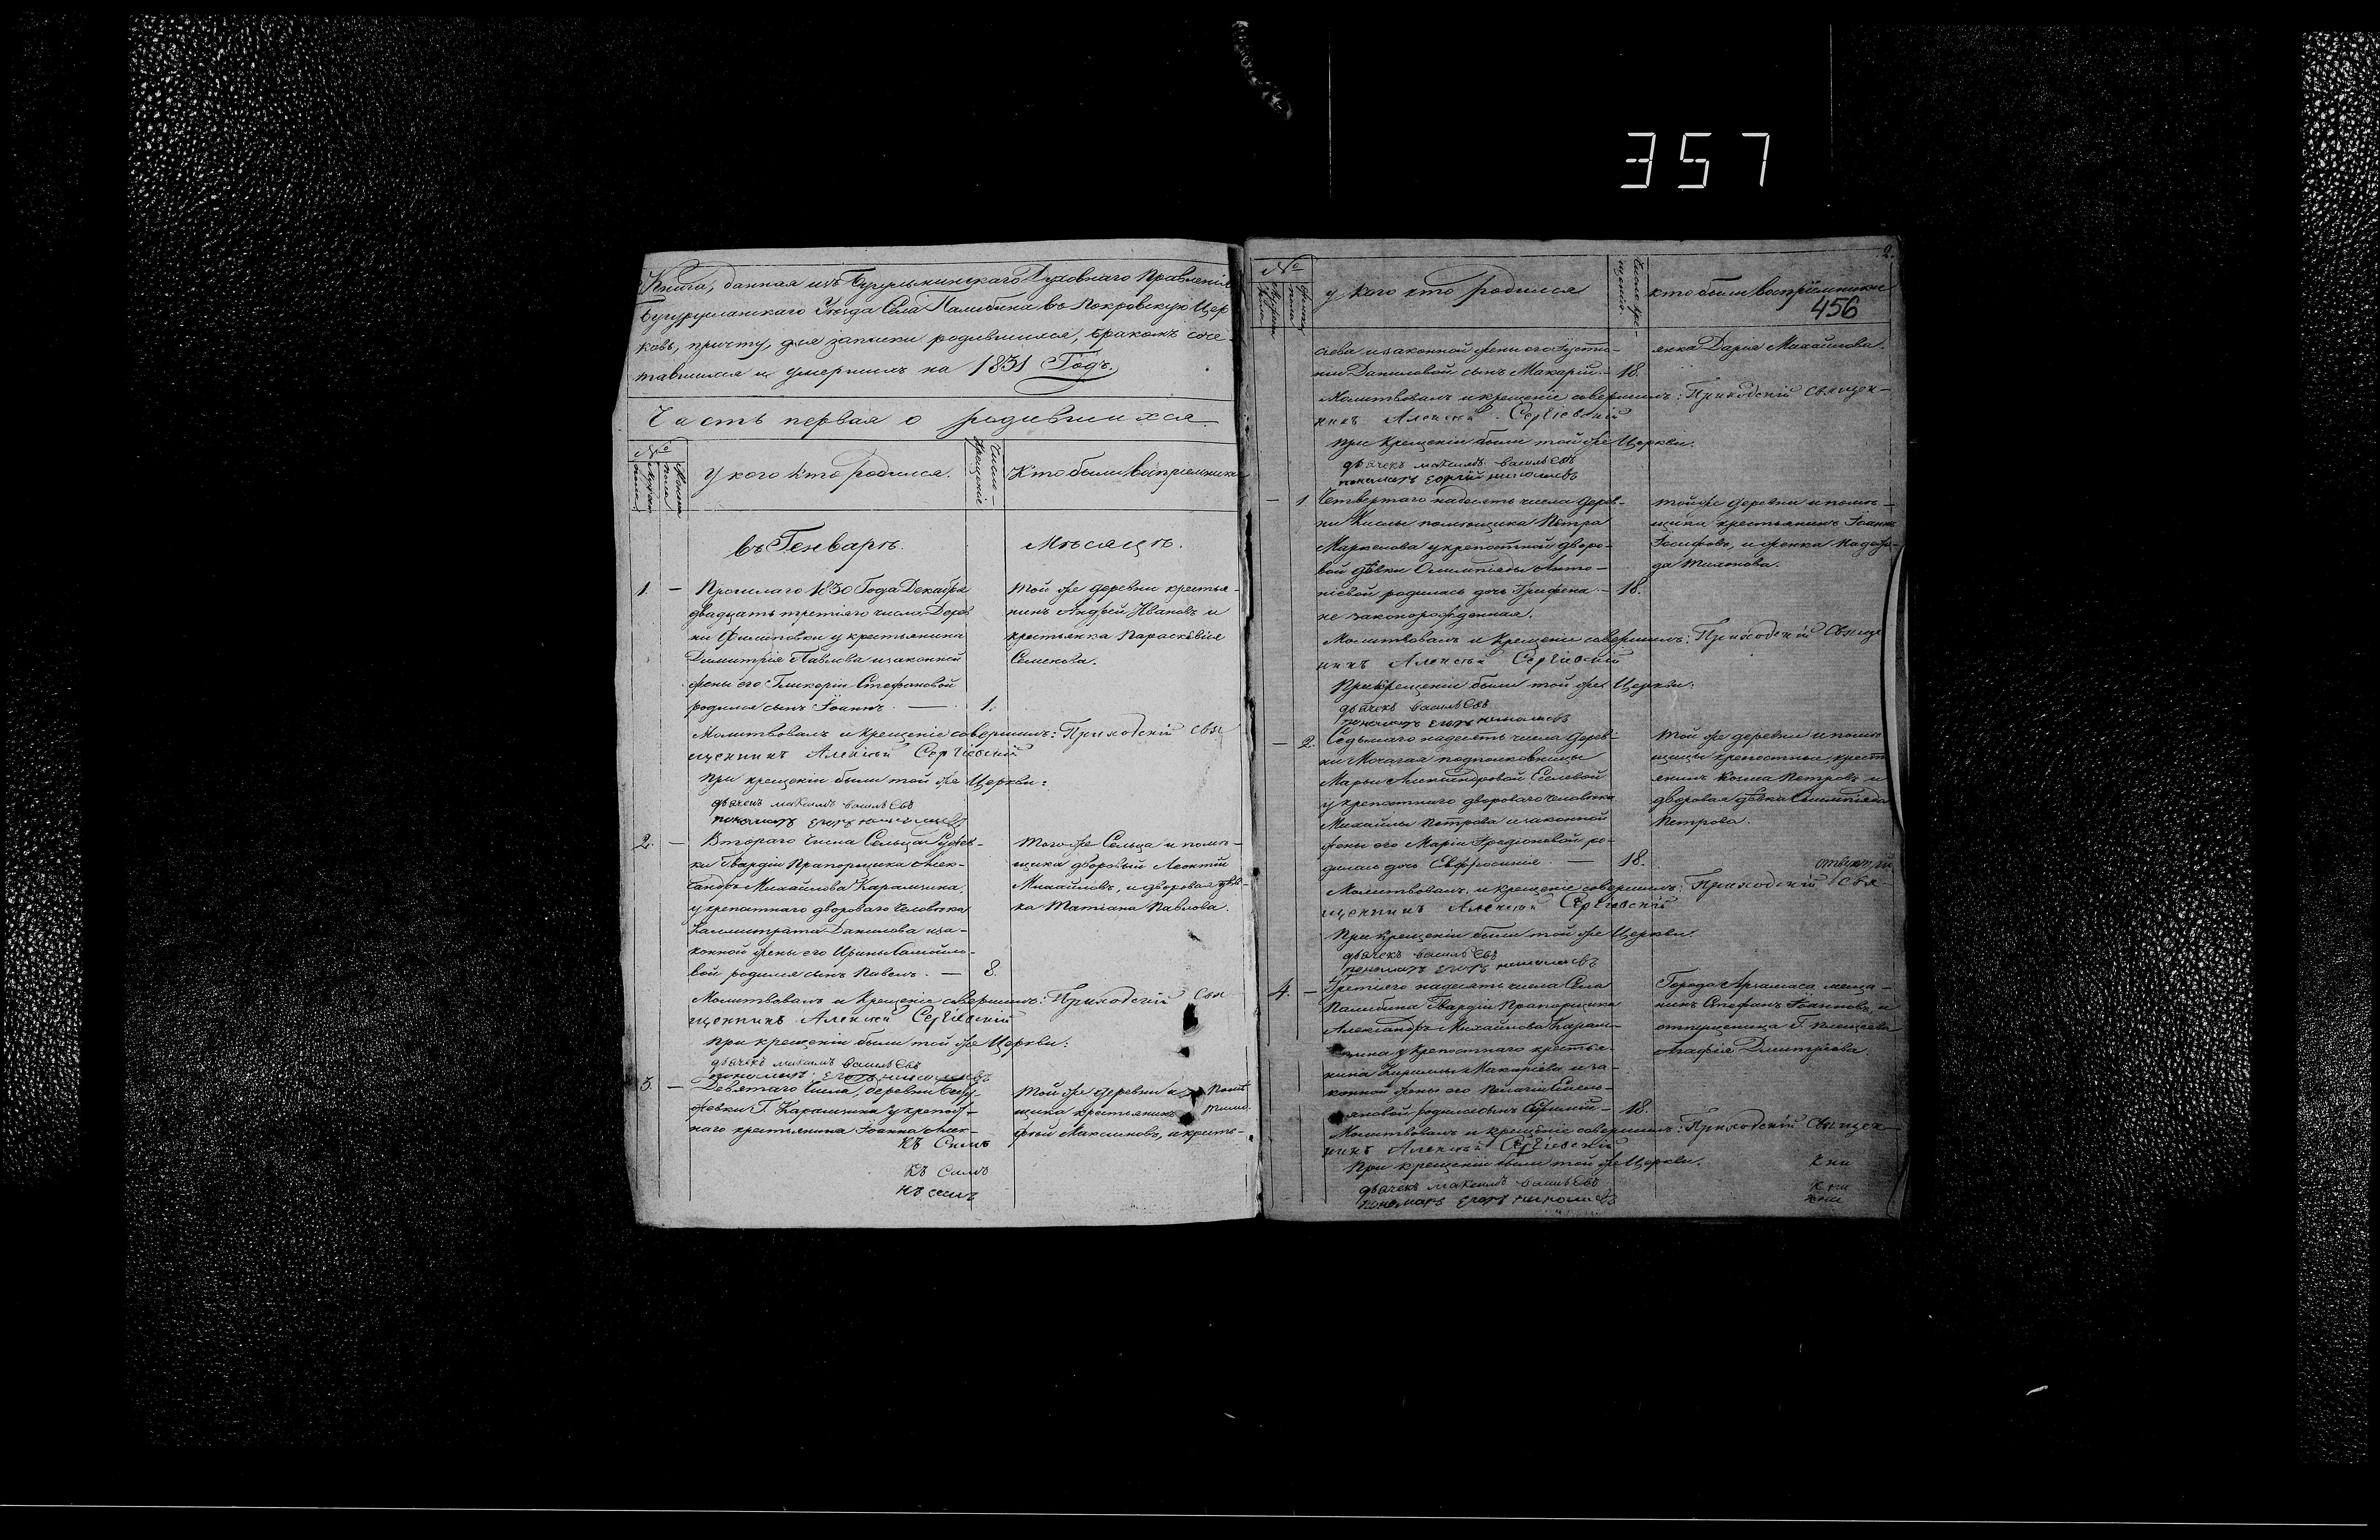 357
Книга, данная изъ Бугульминскаго Духовнаго Правленія
Бугурусланскаго Уезда Села Палибина въ Покровскую Цер
ковь, причту, для записки родившихся, бракомъ соче
тавшихся и умершихъ на 1831 Годъ.
Часть первая о родившихся
№
Мужеска пола
Женска пола
У кого кто родился.
Число крещенiе
Кто были воспріемники
въ Генварѣ. Мѣсяцѣ.
1. — Прошлаго 1830 Года Декабря
двадцать третіяго числа Дерев
ни Филиповки у крестьянина
Димитрія Павлова и законной
жены его Гликеріи Стефановой
родился сынъ Іоаннъ. — 1.
Той же деревни крестья-
нинъ Андрей Ивановъ и
крестьянка Параскевія
Семенова.
Молитвовалъ и крещеніе совершилъ: Приходскій Свя
щенникъ Алексѣй Сергіевскій
При крещеніи были той же Церкви:
дьячекъ максимъ васильевъ
пономарь егоръ николаевъ
2. — Втораго числа Сельца
ки Гвардіи Прапорщика Алек-
сандра Михайлова Карамзина,
у крепостнаго двороваго человѣка
Каллистрата Данилова и за-
конной жены его Ирины Самойло-
вой родился сынъ Павелъ. — 8.
Того же Сельца и помѣ-
щика дворовый Леонтій
Михайловъ, и дворовая дѣв-
ка Татіана Павлова.
Молитвовалъ и Крещеніе совершилъ: Приходскій Свя
щенникъ Алексѣй Сергіевскій
При крещеніи были той же Церкви:
дьячекъ максимъ васильевъ
пономарь егоръ николаевъ
3. — Девятаго числа, деревни
Г. Карамзина у крепост-
наго крестьянина Іоанна Алек-
Той же деревни и помѣ
щика крестьянинъ
Максимовъ, и кресть-
Къ Симъ
Къ симъ
къ симъ
2.
№
Мужеска пола
Женска пола
у кого кто родился
Число кре-
щенія
кто были воспріемники
456
сѣева и законной жены его Іусти-
ніи Даниловой сынъ Макарій. — 18.
янка Дарья Михайлова.
Молитвовалъ и крещеніе совершилъ: Приходскій Священ-
никъ Алексѣй Сергіевскій
При крещеніи были той же Церкви.
дьячекъ максимъ васильевъ
пономарь егоръ николаевъ
— 1 Четвертаго надесять числа Дерев-
ни помѣщика Петра
у крепостной дворо-
вой дѣвки Олимпіяды Анто-
ніевой родилась дочь Агрифена — 18.
не законорожденная.
той же деревни и помѣ-
щика крестьянинъ Іоаннъ
Іосифовъ, и женка Надеж-
да
Молитвовалъ и Крещеніе совершилъ: Приходскій Свяще
никъ Алексѣй Сергіевскій
При крещеніи были той же Церкви:
дьячекъ васильевъ
пономарь егоръ николаевъ
— 2. Седьмаго надесять числа Дерев-
ни Мочагая подполковницы
Марьи Александровой
у крепостнаго двороваго человѣка
Михайлы Петрова и законной
жены его Маріи Іродіоновой ро-
дилась дочь Евфросинія. — 18.
Той же деревни и помѣ
щицы крепостный крест
янинъ Козма Петровъ и
дворовая дѣвка Олимпіяда
Петрова.
Молитвовалъ, и крещеніе совершилъ: Приходскій Свя
щенникъ Алексѣй Сергіевскій
При крещеніи были той же Церкви.
дьячекъ васильевъ
пономарь егоръ николаевъ
4. — Третіяго надесять числа Села
Палибина Гвардіи Прапорщика
Александра Михайлова Карам-
зина у крепостнаго крестья-
нина Кириллы Макаріева и за-
конной жены его Пелагіи Емель-
яновой родился сынъ — 18.
Города Арзамаса меща-
нинъ Стефанъ Іоанновъ, и
отпущеница Г. Плещеева
Агафія Димитріева.
Молитвовалъ и крещеніе совершилъ: Приходскій Священ-
никъ Алексѣй Сергіевскій
При крещеніи были той же Церкви.
дьячекъ максимъ васильевъ
пономарь егоръ николаевъ
Кни
Кни
кни